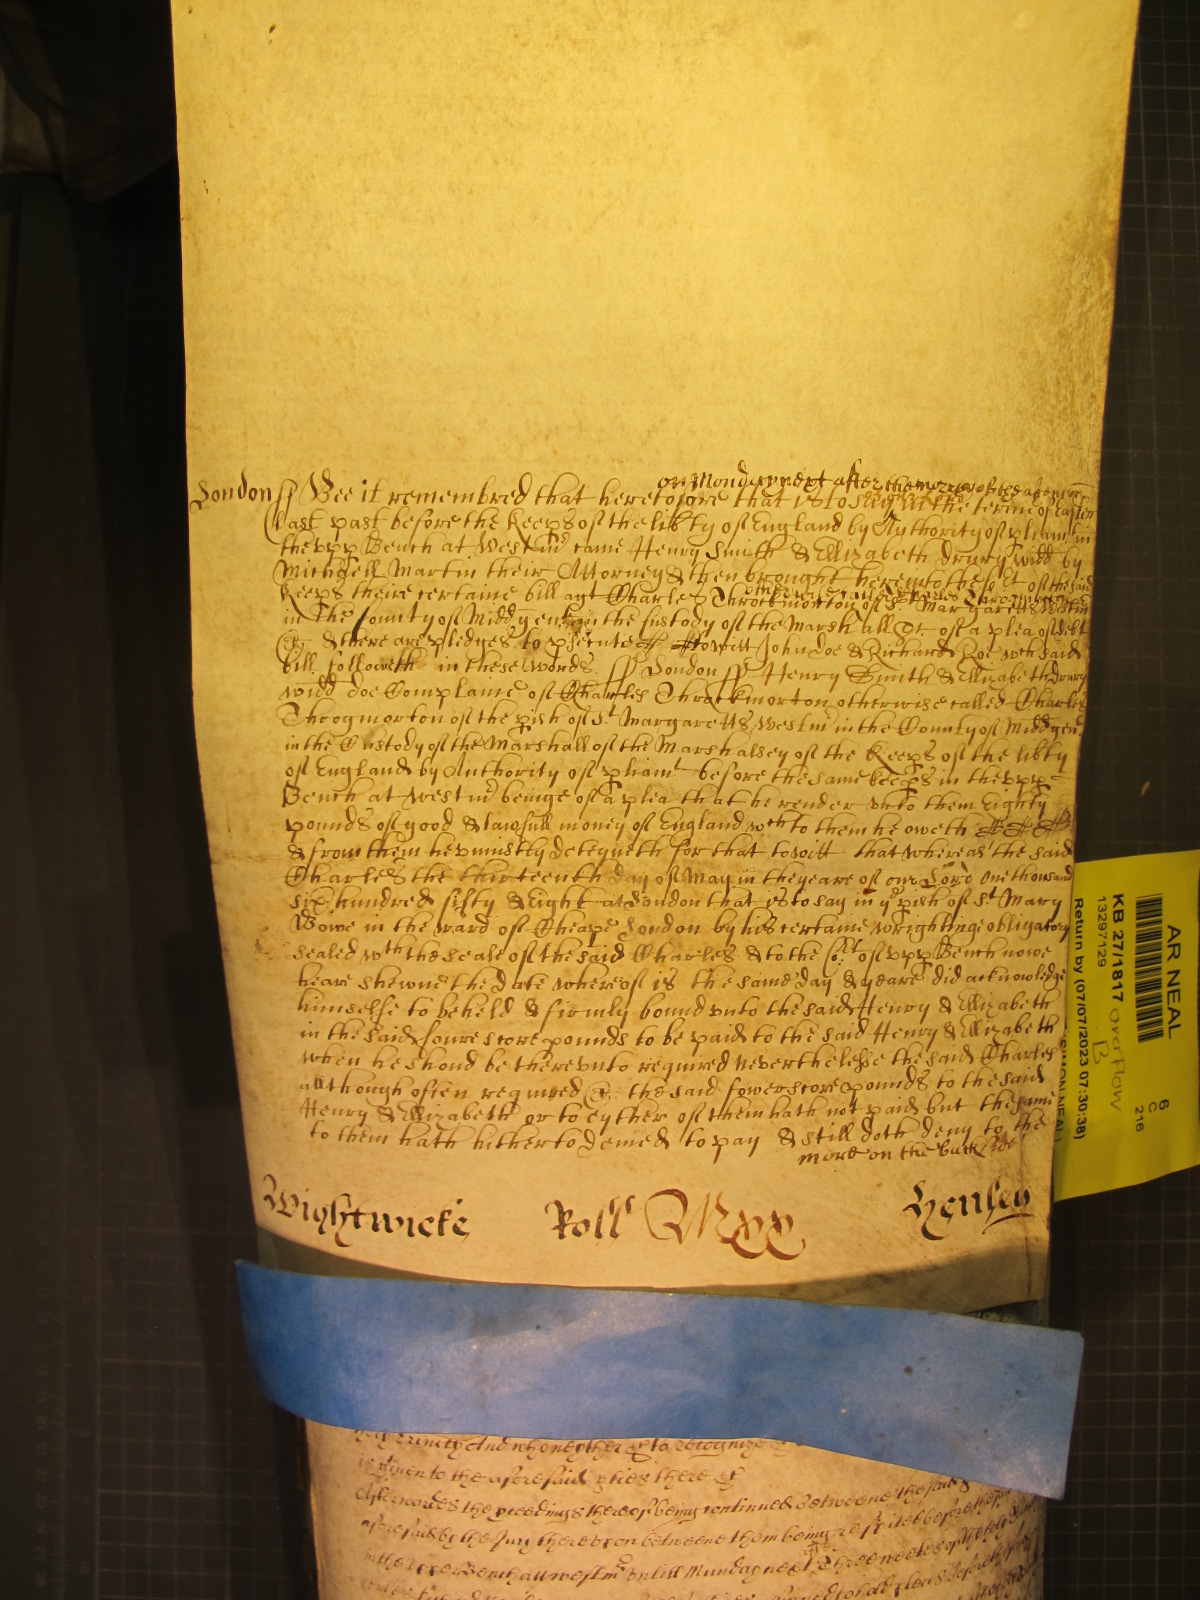 on Monday next after the morrow of the ascention
London ss Bee it remembred that heretofore that is to say in the terme of Easter
last past before the Keeps of the libty of England by Authority of pliamt in
the vpp Bench at Westmr came Henry Smith & Ellizabeth Drury widd by
Michaell Martin their Attorney & then brought here into the sd Ct of the said
otherwise called Charles Throogmorton
Keeps theire certame bill agt Charles Throckmorton of St Margaretts Westmr
in the County of Midd gen in the Custody of the Marshall &c of a plea of debt
& there are pledges to psecute to witt John Doe & Richard Roe wch said
bill followeth in these words ss London ss Henry Smith & Ellizabeth Drury
widd doe Complaine of Charles Throckmorton otherwise called Charles
Throogmorton of the pish of St Margaretts Westmr in the County of Midd gen
in the Custody of the Marshall of the Marshalsey of the Keeps of the libty
of England by Authority of pliamt before the same keeps in the vpp
Bench at Westmr beinge of a plea that he render vnto them Eighty
pounds of good & lawfull money of England wch to them he oweth
& from them he vniustly deteyneth for that to witt that whereas the said
Charles the thirteenth day of May in the yeare of our Lord One thousand
six hundred fifty & Eight at London that is to say in ye pish of St Mary
Bowe in the ward of Cheape London by his certaine wrightinge obligatory
sealed wth the seale of the said Charles & to the Ct of vpp Bench nowe
heare shewne the Date whereof is the same day & yeare did acknowledge
himselfe to be held & firmly bound vnto the said Henry & Ellizabeth
in the said foure score pounds to be paid to the said Henry & Ellizabeth
when he shoud be therevnto required neverthelesse the said Charles
although often required &c the said fower score pounds to the said
Henry & Ellizabeth or to eyther of them hath not paid but the same
to them hath hitherto denied to pay & still doth deny to the
more on the back side
Wightwicke Roll MXX Henley
holy Trinity And whoneyther &c to recognize &c
is given to the aforesaid pties there &c
Afterwards the pceedings thereof being continued Betweene the said
aforesaid by the Jury therevpon betweene them being respited before the
in the vpper Bench att westmr vntill Munday next Three weekes of the holy
AR NEAL
KB 27/1817 overflow
B
13297129
Return by (07/07/2023 07:30:38)
6
C
216